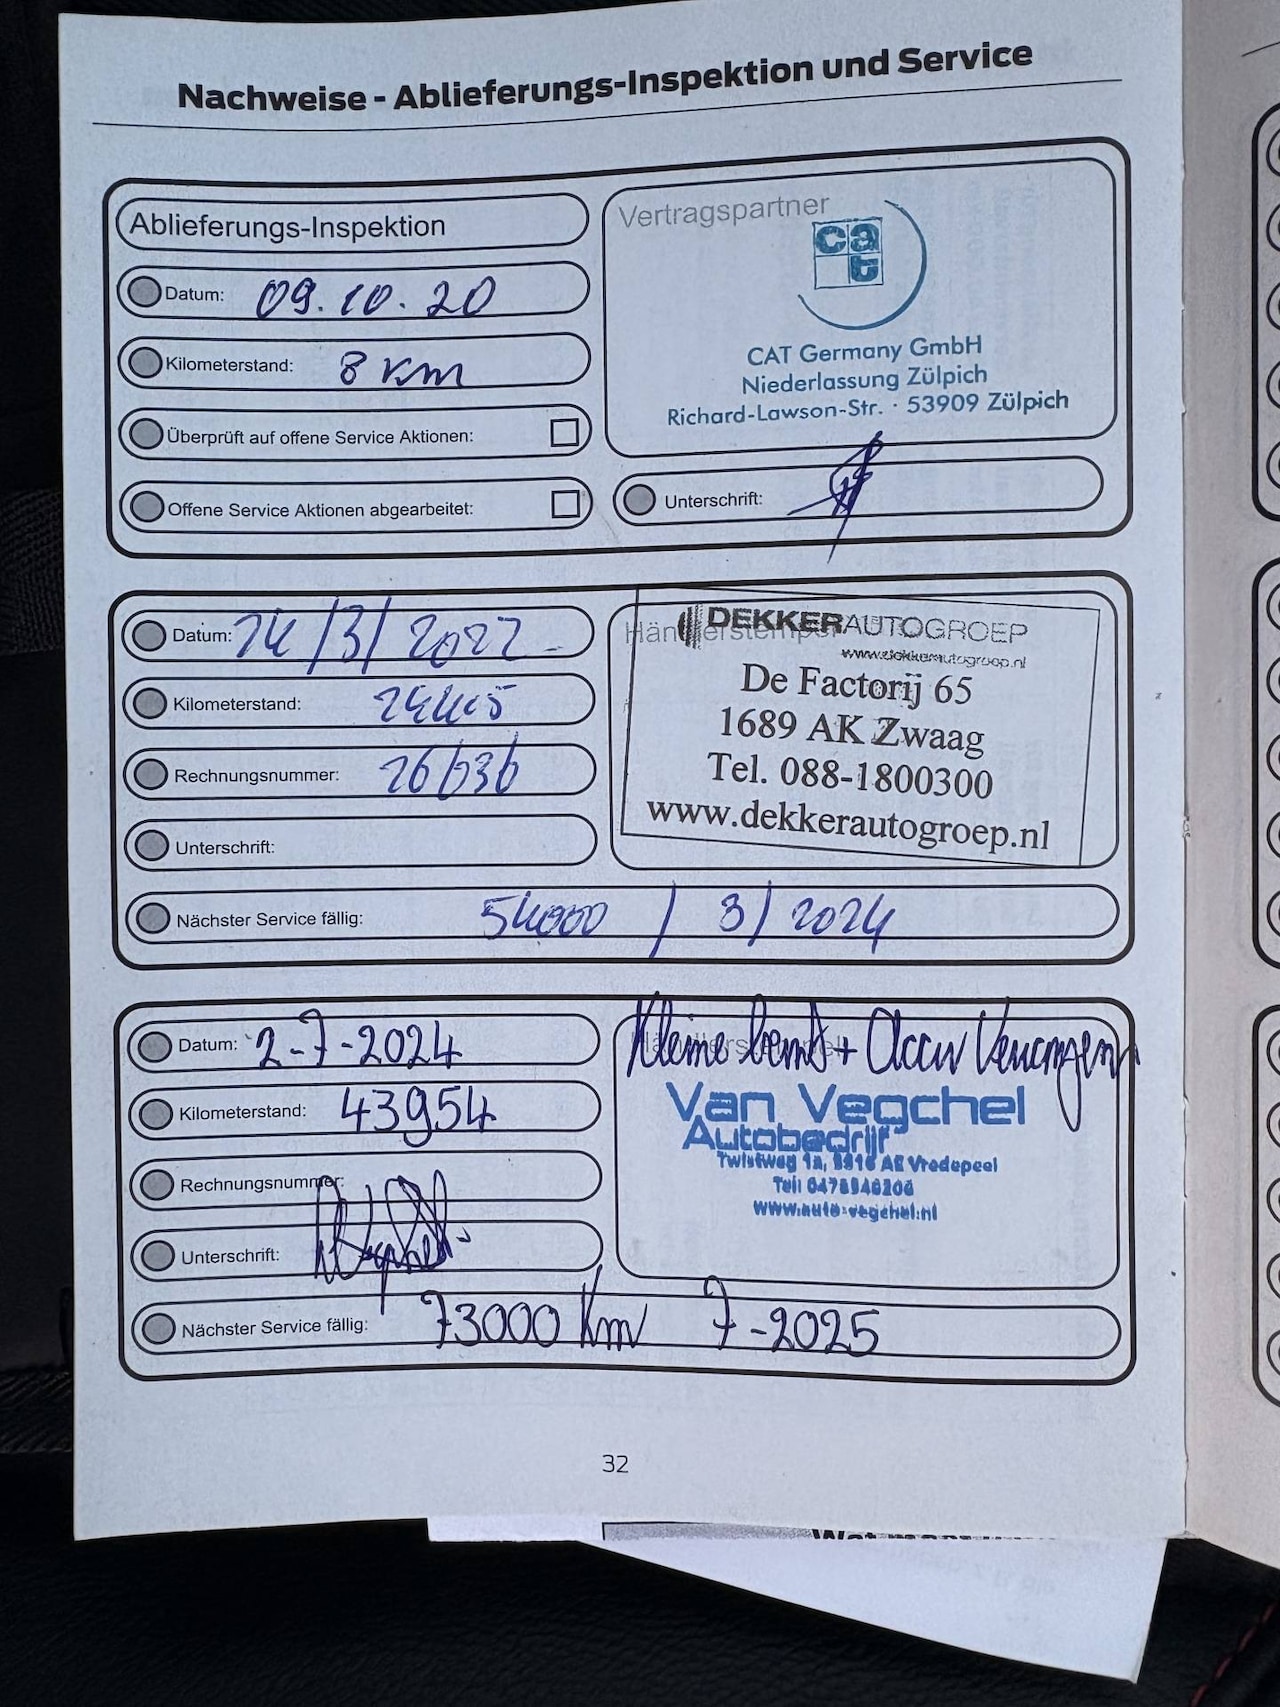 Nachweise - Ablieferungs-Inspektion und Service
Ablieferungs-Inspektion
Datum: 09.10.20
Kilometerstand: 8 km
Überprüft auf offene Service Aktionen:
Offene Service Aktionen abgearbeitet:
Vertragspartner
cat
CAT Germany GmbH
Niederlassung Zülpich
Richard-Lawson-Str. · 53909 Zülpich
Unterschrift:
Datum: 24/3/2022
Kilometerstand:
Rechnungsnummer:
Unterschrift:
Händlerstempel
DEKKERAUTOGROEP
www.dekkerautogroep.nl
De Factorij 65
1689 AK Zwaag
Tel. 088-1800300
www.dekkerautogroep.nl
Nächster Service fällig: 54000 / 3/2024
Datum: 2-7-2024
Kilometerstand: 43954
Rechnungsnummer:
Unterschrift:
Händlerstempel
Kleine + Accu
Van Vegchel
Autobedrijf
Twistweg 1a, 5816 AE Vredepeel
Tel:
www.auto-vegchel.nl
Nächster Service fällig: 73000 Km 7-2025
32